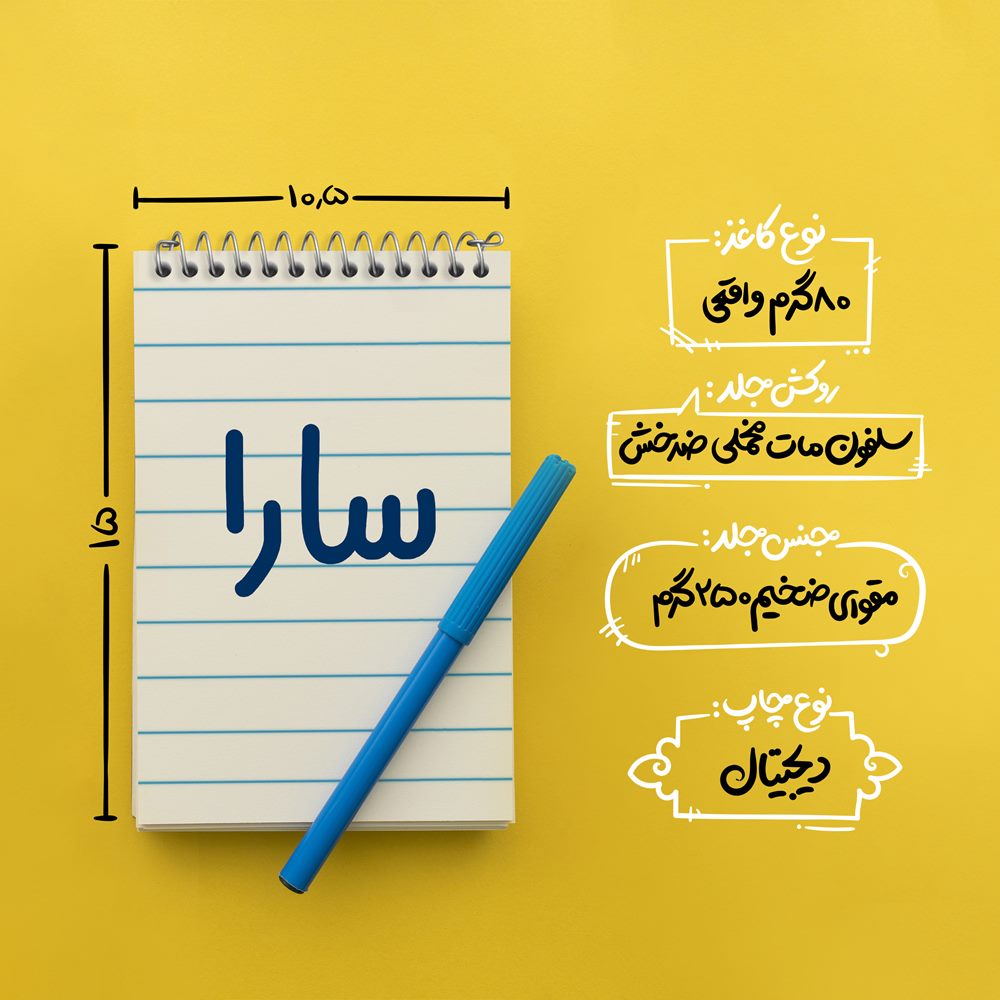 ۱۰,۵
۱۵
سارا
نوع کاغذ:
۸۰گرم واقعی
روکش جلد:
سلفون مات مخملی ضدخش
جنس جلد:
مقوای ضخیم ۲۵۰گرم
نوع چاپ:
دیجیتال